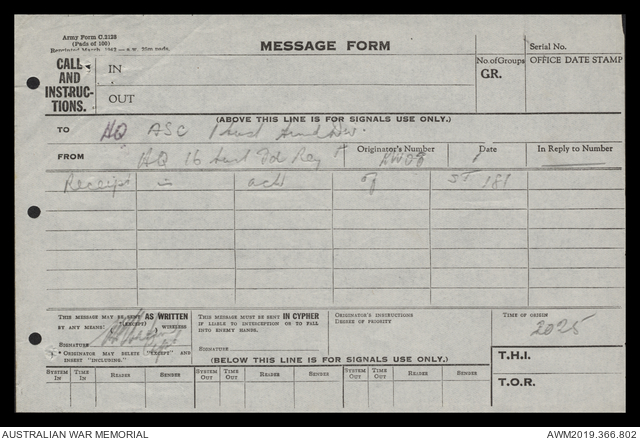 Army Form C.2128
(Pads of 100)
MESSAGE FORM
Serial No.
CALL
AND
INSTRUC-
TIONS.
IN
OUT
No. of Groups
GR.
OFFICE DATE STAMP
(ABOVE THIS LINE IS FOR SIGNALS USE ONLY.)
TO HQ ASC 1 Aust
FROM HQ 16 Aust Fd Reg
Originator's Number
Date
In Reply to Number
Receipt is ack of ST 181
THIS MESSAGE MAY BE SENT AS WRITTEN
BY ANY MEANS. (EXCEPT) WIRELESS
SIGNATURE
* ORIGINATOR MAY DELETE "EXCEPT" AND
INSERT "INCLUDING."
THIS MESSAGE MUST BE SENT IN CYPHER
IF LIABLE TO INTERCEPTION OR TO FALL
INTO ENEMY HANDS.
SIGNATURE
ORIGINATOR'S INSTRUCTIONS
DEGREE OF PRIORITY
TIME OF ORIGIN
2025
(BELOW THIS LINE IS FOR SIGNALS USE ONLY.)
T.H.I.
T.O.R.
SYSTEM IN
TIME IN
READER
SENDER
SYSTEM OUT
TIME OUT
READER
SENDER
SYSTEM OUT
TIME OUT
READER
SENDER
AUSTRALIAN WAR MEMORIAL
AWM2019.366.802